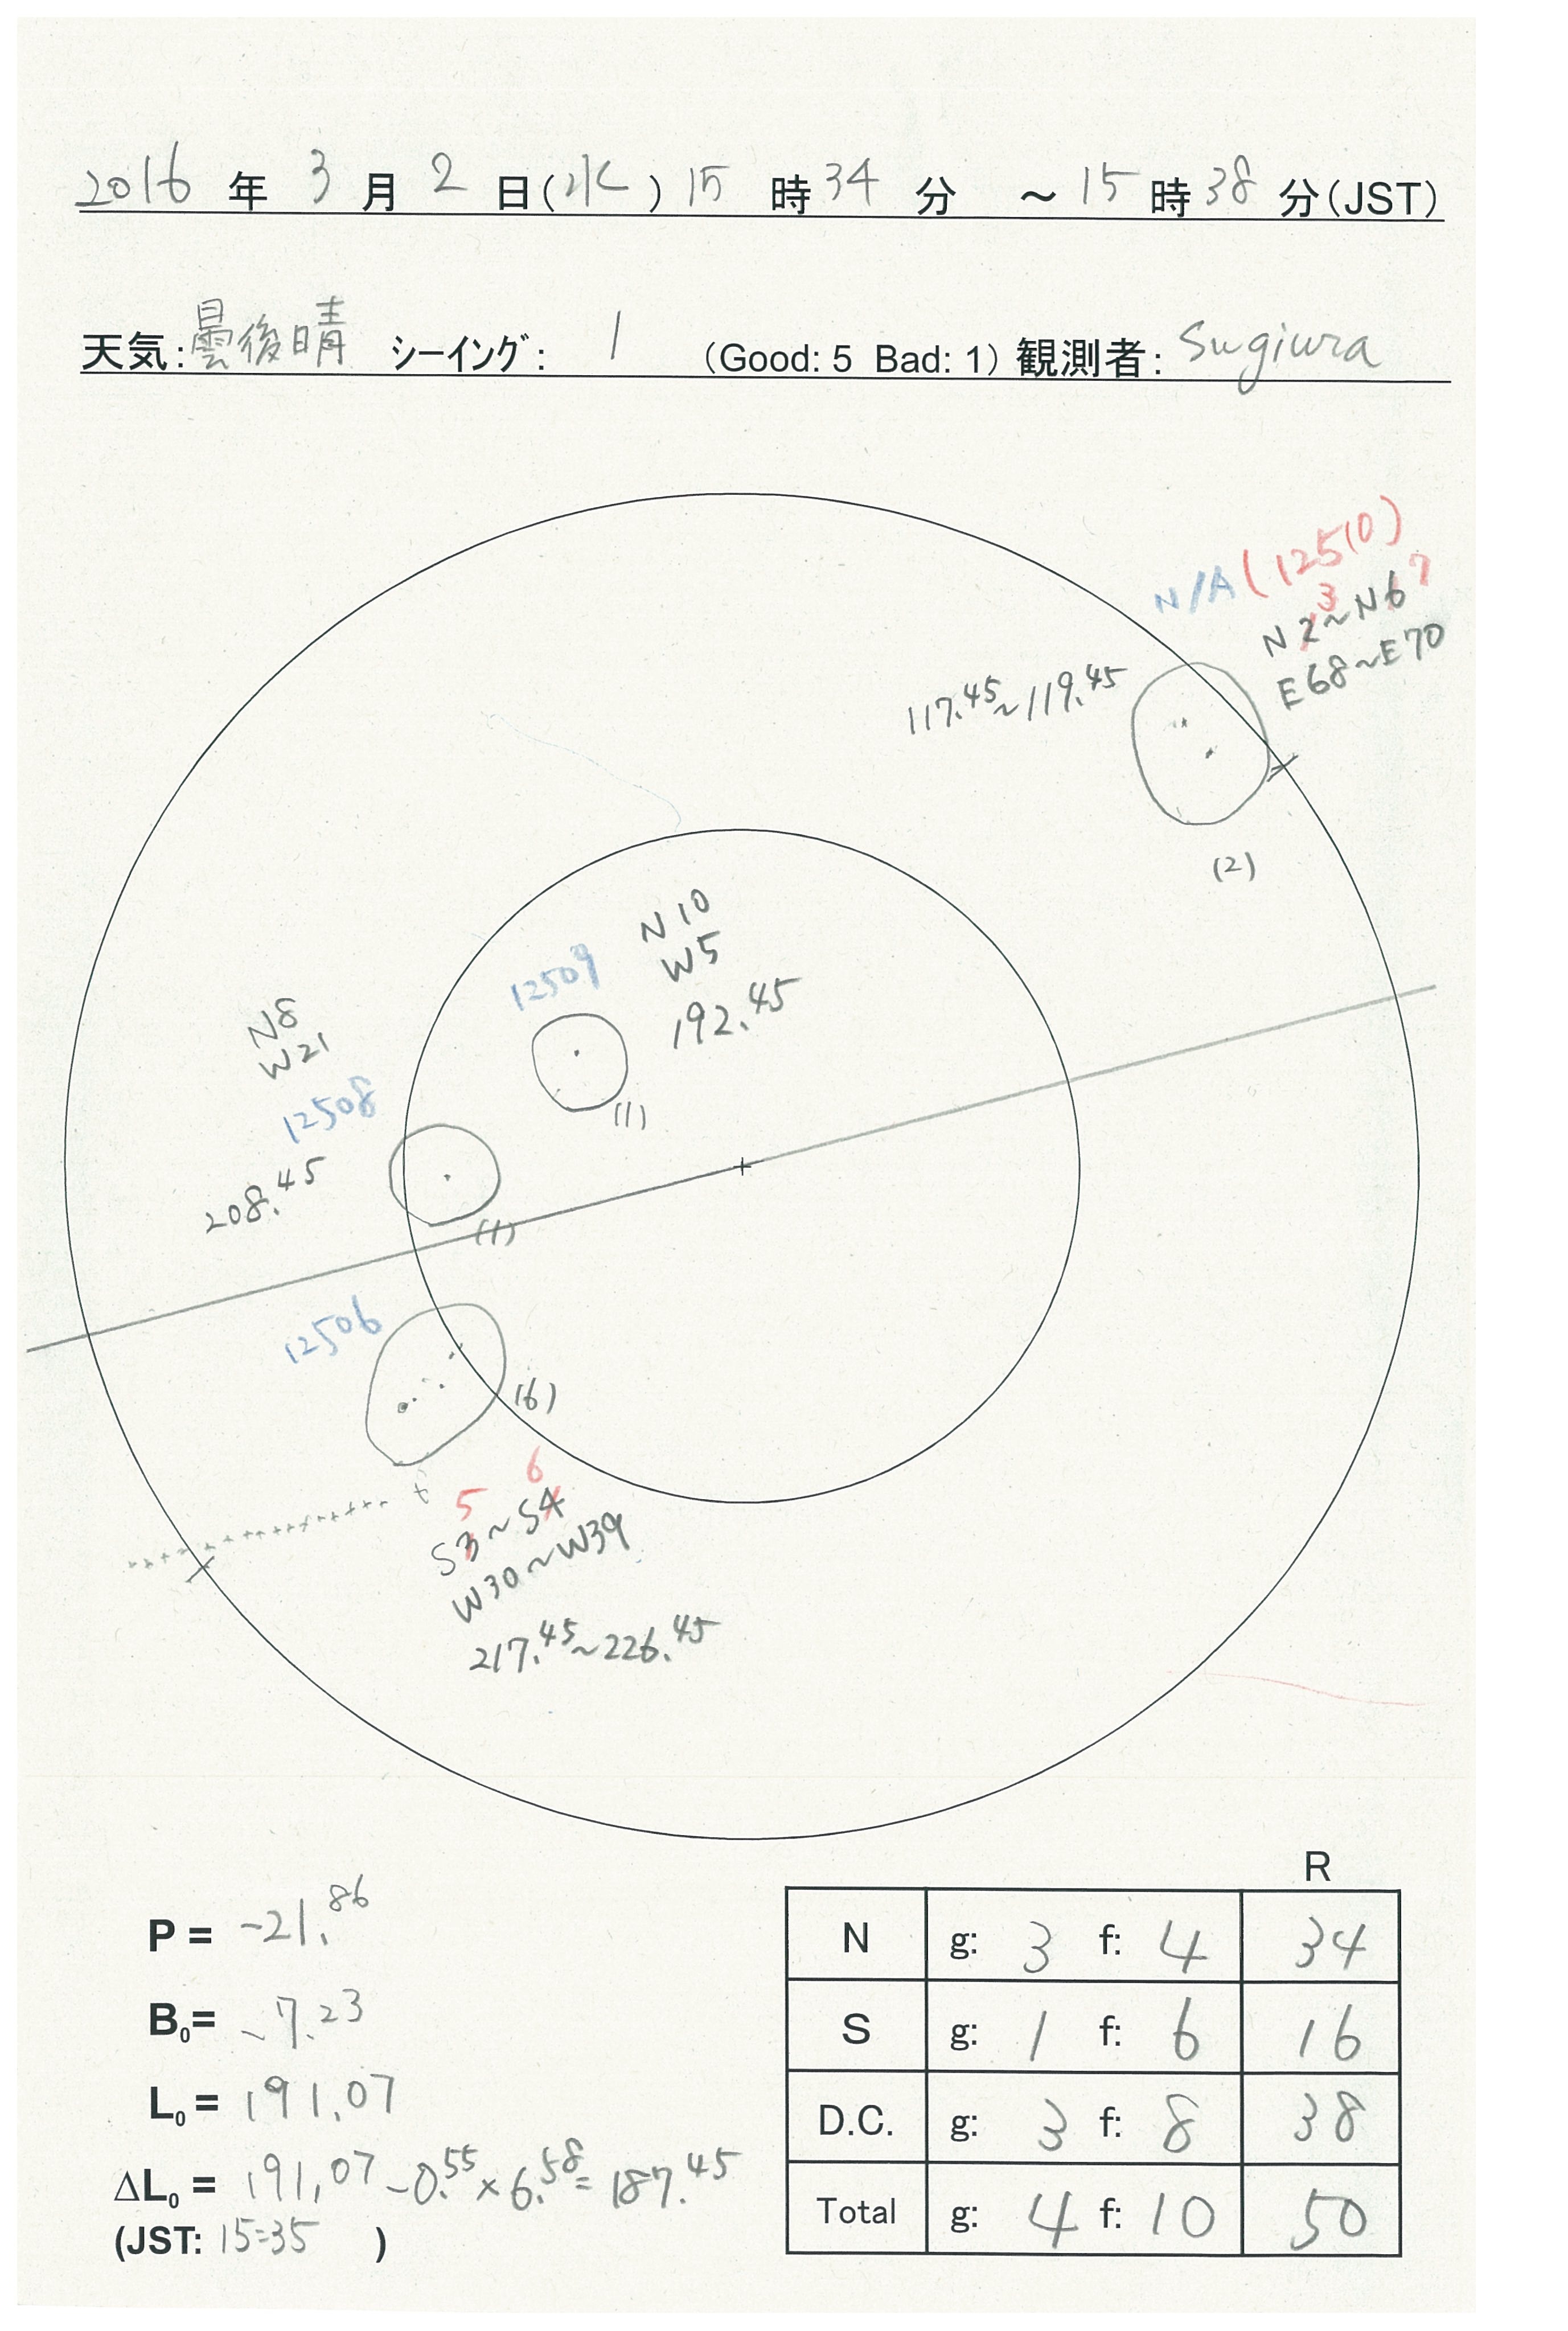 2016 年 3 月 2 日(水) 15 時 34 分 ～ 15 時 38 分(JST)
天気: 曇後晴 シーイング: 1 (Good: 5 Bad: 1) 観測者: Sugiura
N/A (12510)
3 7
N2~N6
E68~E70
117.45~119.45
(2)
N10
W5
12509
192.45
(1)
N8
W21
12508
208.45
(1)
12506
(6)
5 6
S3~S4
W30~W39
217.45~226.45
R
P = -21.86
B0= -7.23
L0 = 191.07
ΔL0 = 191.07 - 0.55 × 6.58 = 187.45
(JST: 15:35 )
N g: 3 f: 4 34
S g: 1 f: 6 16
D.C. g: 3 f: 8 38
Total g: 4 f: 10 50